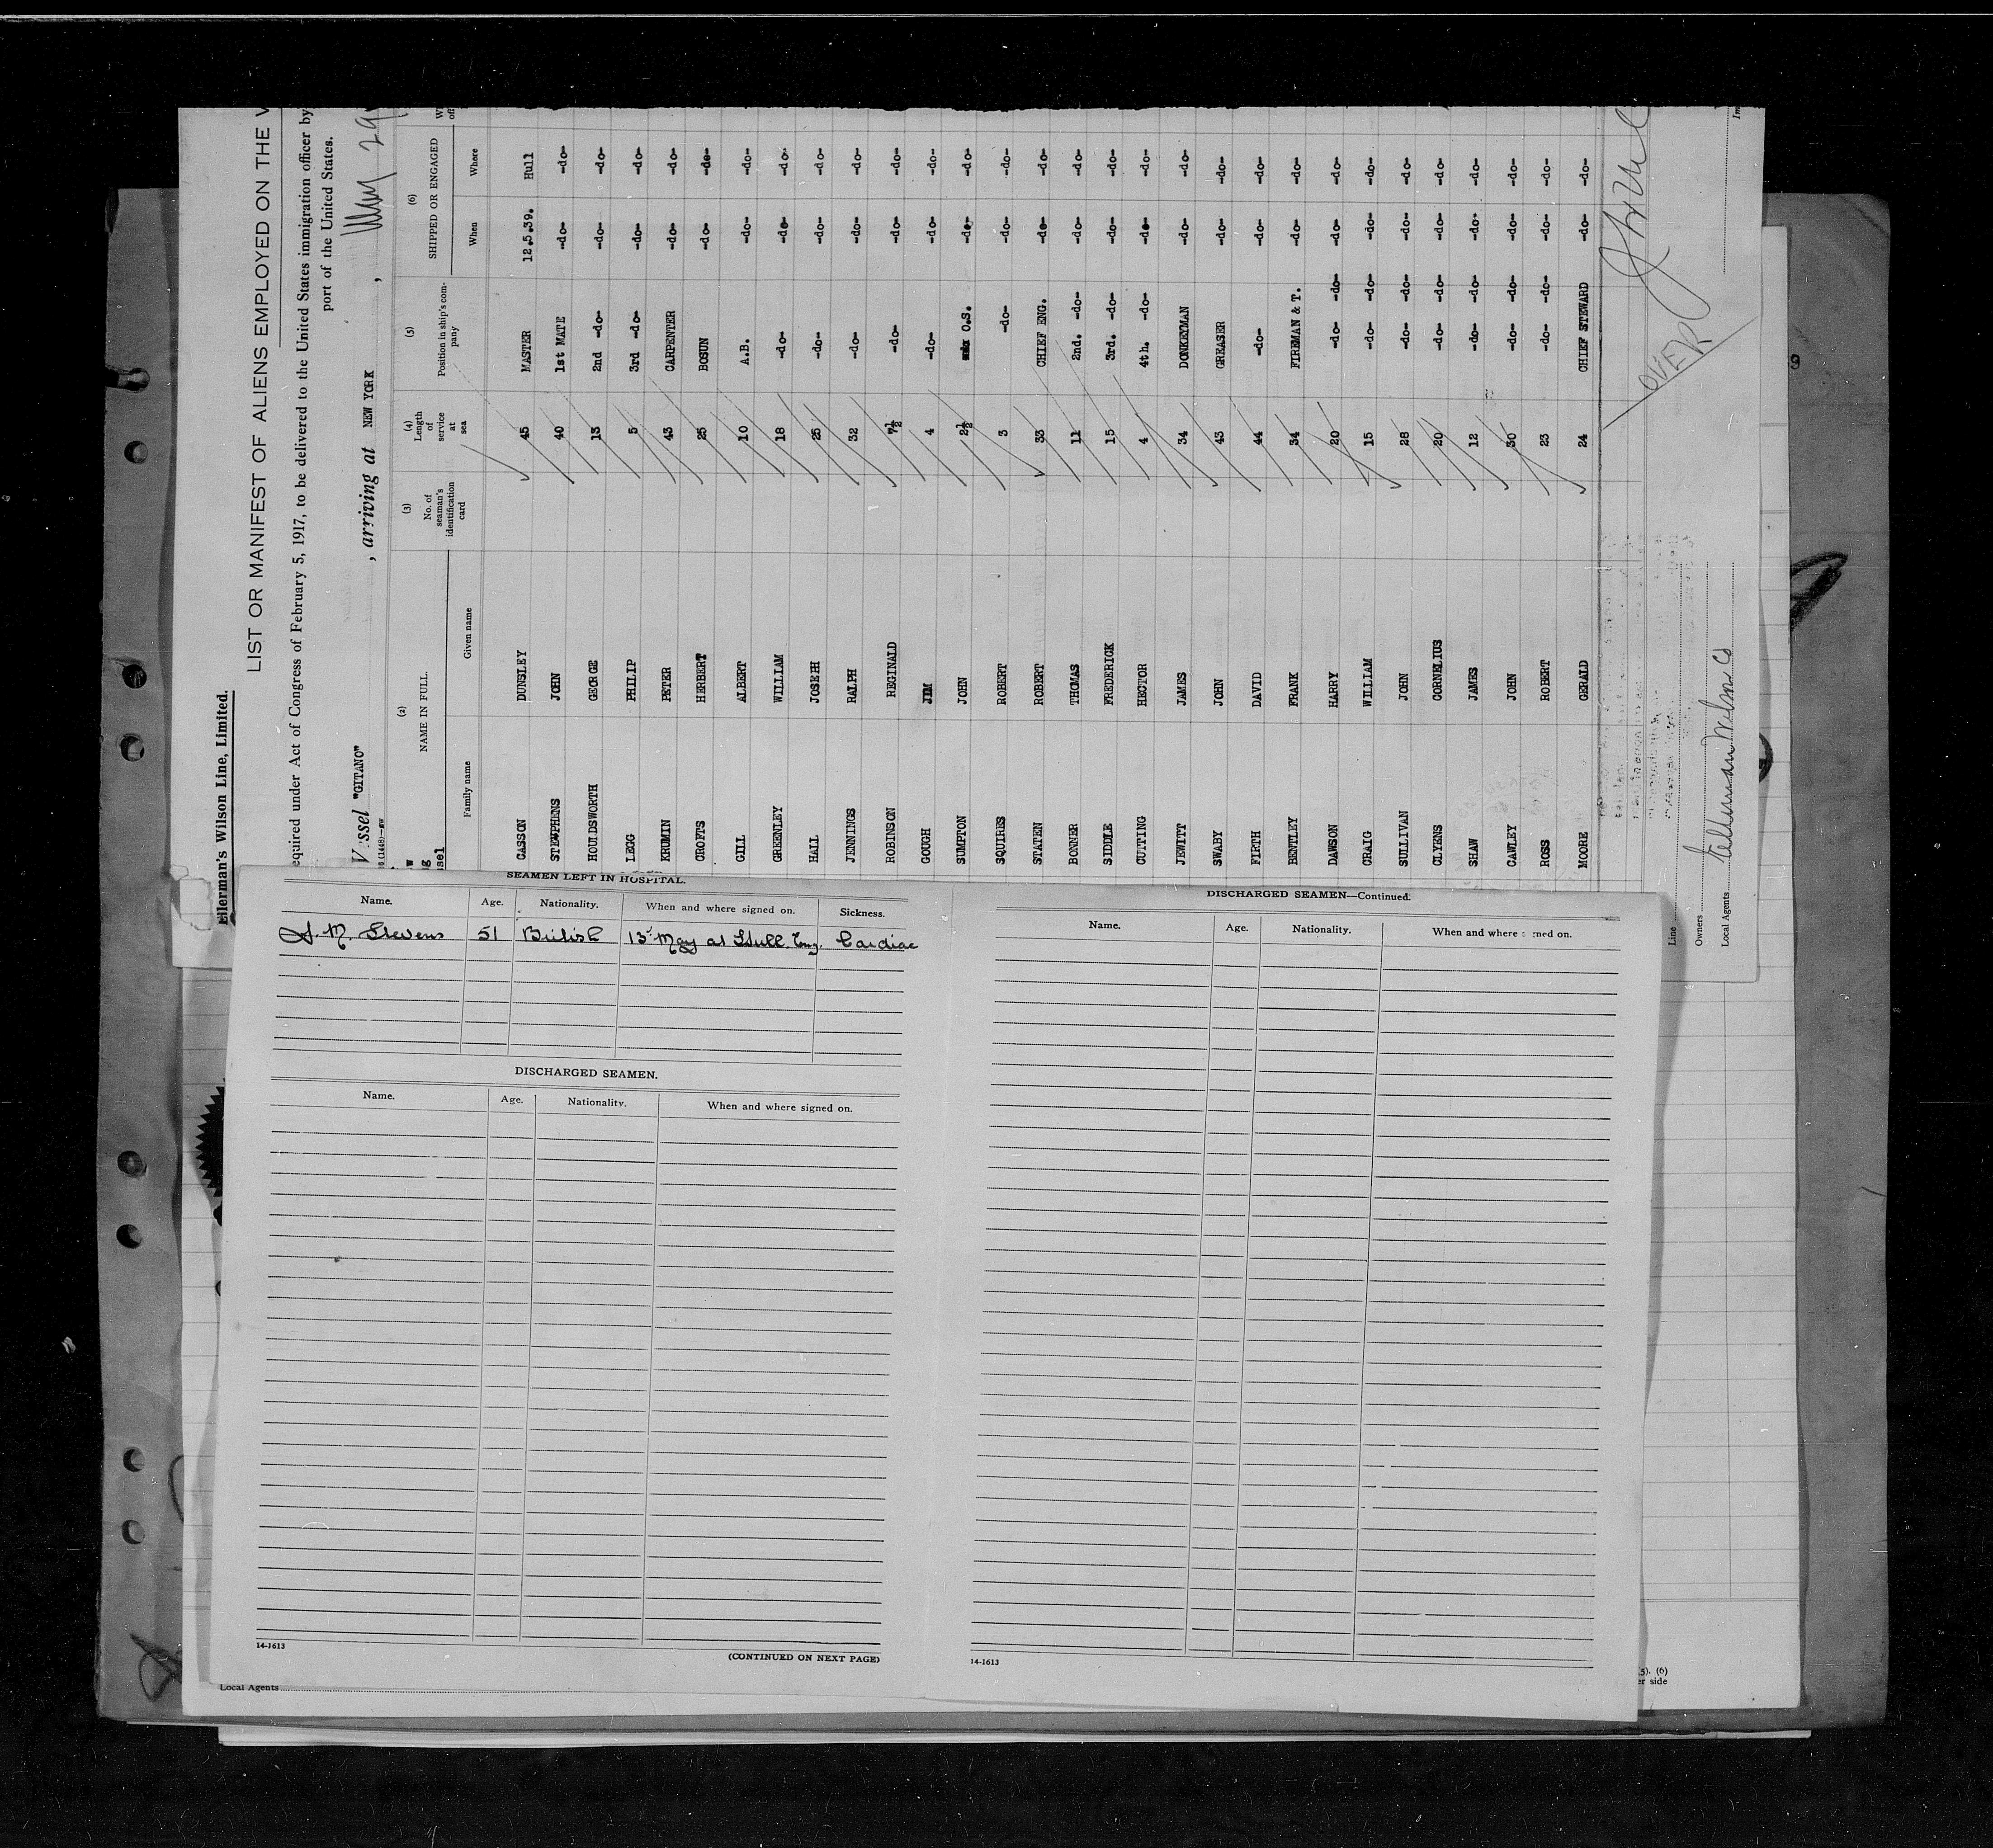 Ellerman's Wilson Line, Limited.
LIST OR MANIFEST OF ALIENS EMPLOYED ON THE V
equired under Act of Congress of February 5, 1917, to be delivered to the United States immigration officer by
port of the United States.
Vessel "GITANO" , arriving at NEW YORK , 29
(2) (3) (4) (5) (6)
NAME IN FULL No. of seaman's identification card Length of service at sea Position in ship's company SHIPPED OR ENGAGED
Family name Given name When Where
CASSON DUNSLEY 45 MASTER 12.5.39. Hull
STEWPHENS JOHN 40 1st MATE -do- -do-
HOULDSWORTH GEORGE 13 2nd -do- -do- -do-
LEGG PHILIP 5 3rd -do- -do- -do-
KRUMIN PETER 43 CARPENTER -do- -do-
CROFTS HERBERT 25 BOSUN -do- -do-
GILL ALBERT 10 A.B. -do- -do-
GREENLEY WILLIAM 18 -do- -do- -do-
HALL JOSEPH 25 -do- -do- -do-
JENNINGS RALPH 32 -do- -do- -do-
ROBINSON REGINALD 7½ -do- -do- -do-
GOUGH JIM 4 -do- -do- -do-
SUMPTON JOHN 2½ O.S. -do- -do-
SQUIRES ROBERT 3 -do- -do- -do-
STATEN ROBERT 33 CHIEF ENG. -do- -do-
BONNER THOMAS 11 2nd. -do- -do- -do-
SIDDLE FREDERICK 15 3rd. -do- -do- -do-
CUTTING HECTOR 4 4th. -do- -do- -do-
JEWITT JAMES 34 DONKEYMAN -do- -do-
SWABY JOHN 43 GREASER -do- -do-
FIRTH DAVID 44 -do- -do- -do-
BENTLEY FRANK 34 FIREMAN & T. -do- -do-
DAWSON HARRY 20 -do- -do- -do- -do-
CRAIG WILLIAM 15 -do- -do- -do- -do-
SULLIVAN JOHN 28 -do- -do- -do- -do-
CLYENS CORNELIUS 20 -do- -do- -do- -do-
SHAW JAMES 12 -do- -do- -do- -do-
CAWLEY JOHN 30 -do- -do- -do- -do-
ROSS ROBERT 23 -do- -do- -do- -do-
MOORE GERALD 24 CHIEF STEWARD -do- -do-
OVER
Line
Owners
Local Agents Ellerman Wilson Co
SEAMEN LEFT IN HOSPITAL.
Name. Age. Nationality. When and where signed on. Sickness.
J. M. Stevens 51 British 13 May at Hull. Eng. Cardiac
DISCHARGED SEAMEN.
Name. Age. Nationality. When and where signed on.
14-1613
(CONTINUED ON NEXT PAGE)
DISCHARGED SEAMEN—Continued.
Name. Age. Nationality. When and where s ned on.
14-1613
Local Agents
5). (6)
er side